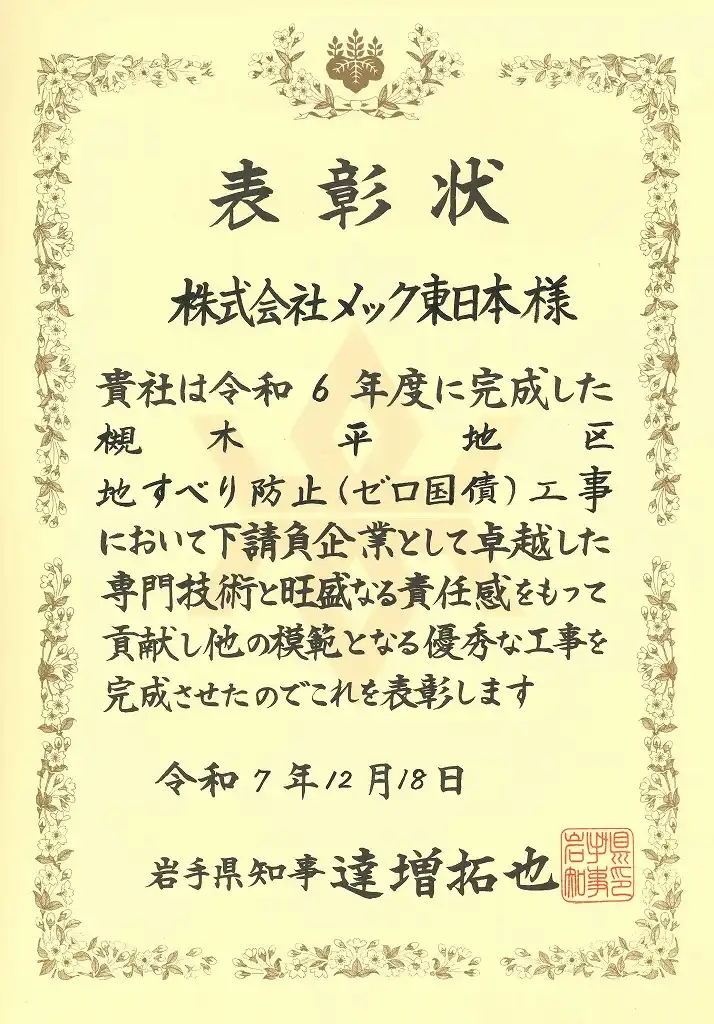 表彰状
株式会社メック東日本様
貴社は令和6年度に完成した
槻木平地区
地すべり防止(ゼロ国債)工事
において下請負企業として卓越した
専門技術と旺盛なる責任感をもって
貢献し他の模範となる優秀な工事を
完成させたのでこれを表彰します
令和7年12月18日
岩手県知事達増拓也
岩手県知事印